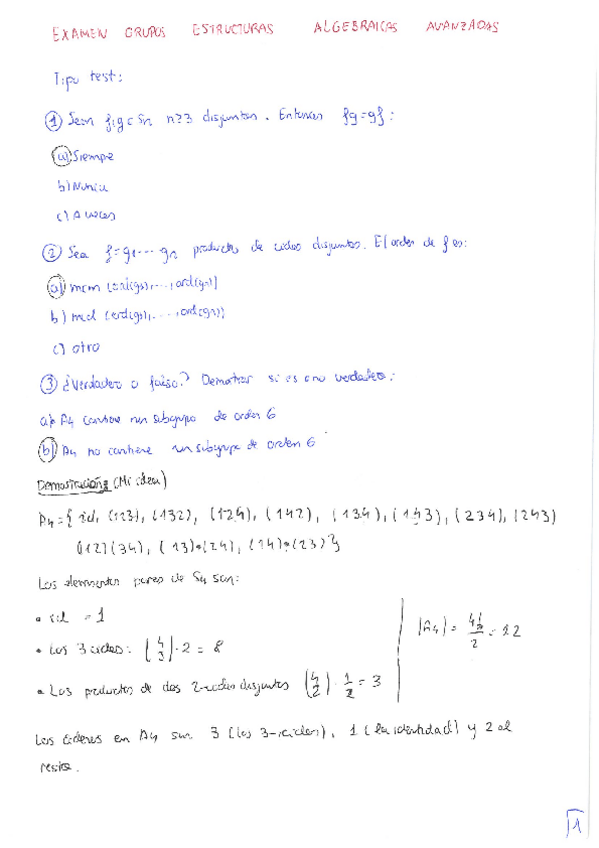 EXAMEN GRUPOS ESTRUCTURAS ALGEBRAICAS AVANZADAS
Tipo test:
① Sean f,g ∈ Sn n≥3 disjuntos. Entonces fg=gf:
(a) Siempre
b) Nunca
c) A veces
② Sea f=g1...gn productos de ciclos disjuntos. El orden de f es:
(a) mcm (ord(g1),...,ord(gn))
b) mcd (ord(g1),...,ord(gn))
c) otro
③ ¿Verdadero o falso? Demostrar si es o no verdadero:
a) A4 contiene un subgrupo de orden 6
(b) A4 no contiene un subgrupo de orden 6
Demostración (Mi idea)
A4={id, (123), (132), (124), (142), (134), (143), (234), (243)
(12)(34), (13)∘(24), (14)∘(23)}
Los elementos pares de S4 son:
• id = 1
• Los 3 ciclos: (4/3)·2 = 8
• Los productos de dos 2-ciclos disjuntos (4/2)·1/2 = 3
|A4| = 4!/2 = 12
Los órdenes en A4 son 3 (los 3-ciclos), 1 (la identidad) y 2 el
resto.
1